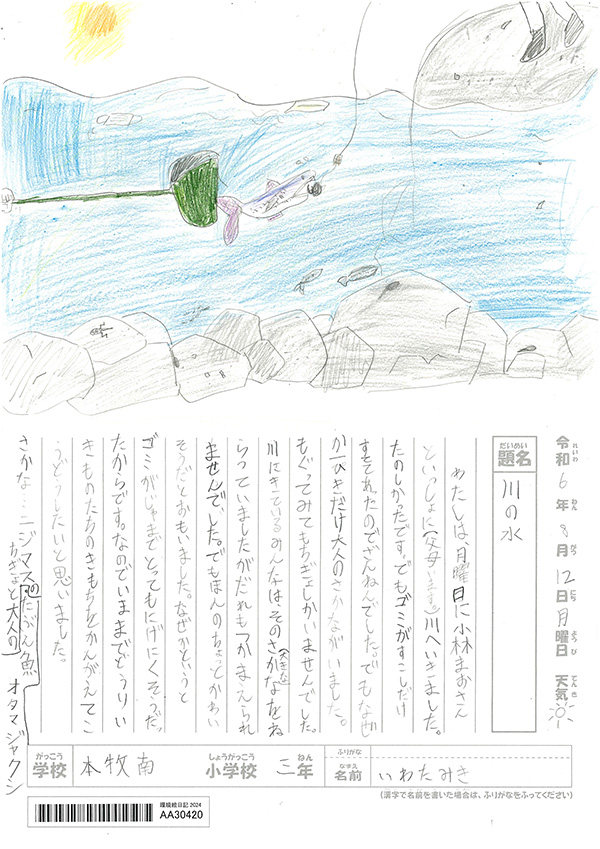 令和6年8月12日月曜日 天気
れいわ ねん がつ にち ようび てんき
だいめい
題名 川の水
わたしは、月曜日に小林まおさん
といっしょに(父母)川へいきました。
たのしかったです。でもゴミがすこしだけ
すてれたのでざんねんでした。でもなぜ
か一ぴきだけ大人のさかながいました。
もぐってみてもちぎょしかいませんでした。
川にきているみんなは、そのさかなをね
(大きな)
らっていましたがだれもつかまえられ
ませんでした。でもほんのちょっとかわい
そうだとおもいました。なぜかというと
ゴミがじゃまでとってもにげにくそうだっ
たからです。なのでいままでどうりい
きものたちのきもちをかんがえてこ
うどうしたいと思いました。
さかな…ニジマスのたぶん魚
ちぎょと大人の オタマジャクシ
がっこう しょうがっこう ねん ふりがな
学校 本牧南 小学校 三年 なまえ 名前 いわたみき
(漢字で名前を書いた場合は、ふりがなをふってください)
環境絵日記2024
AA30420